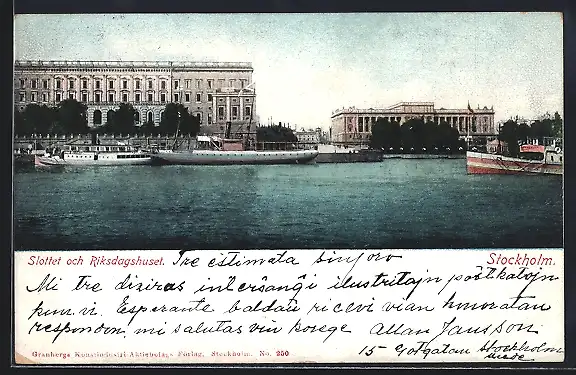 Slottet och Riksdagshuset. Tre estimata sinjoro Stockholm.
Mi tre dziras interŝanĝi ilustritajn poŝtkartojn
kun vi. Esperante baldaŭ ricevi vian honoratan
respondon, mi salutas vin kore Allan Jansson
Granbergs Konstindustri-Aktiebolags Förlag, Stockholm. No. 250
15 Götgatan Stockholm